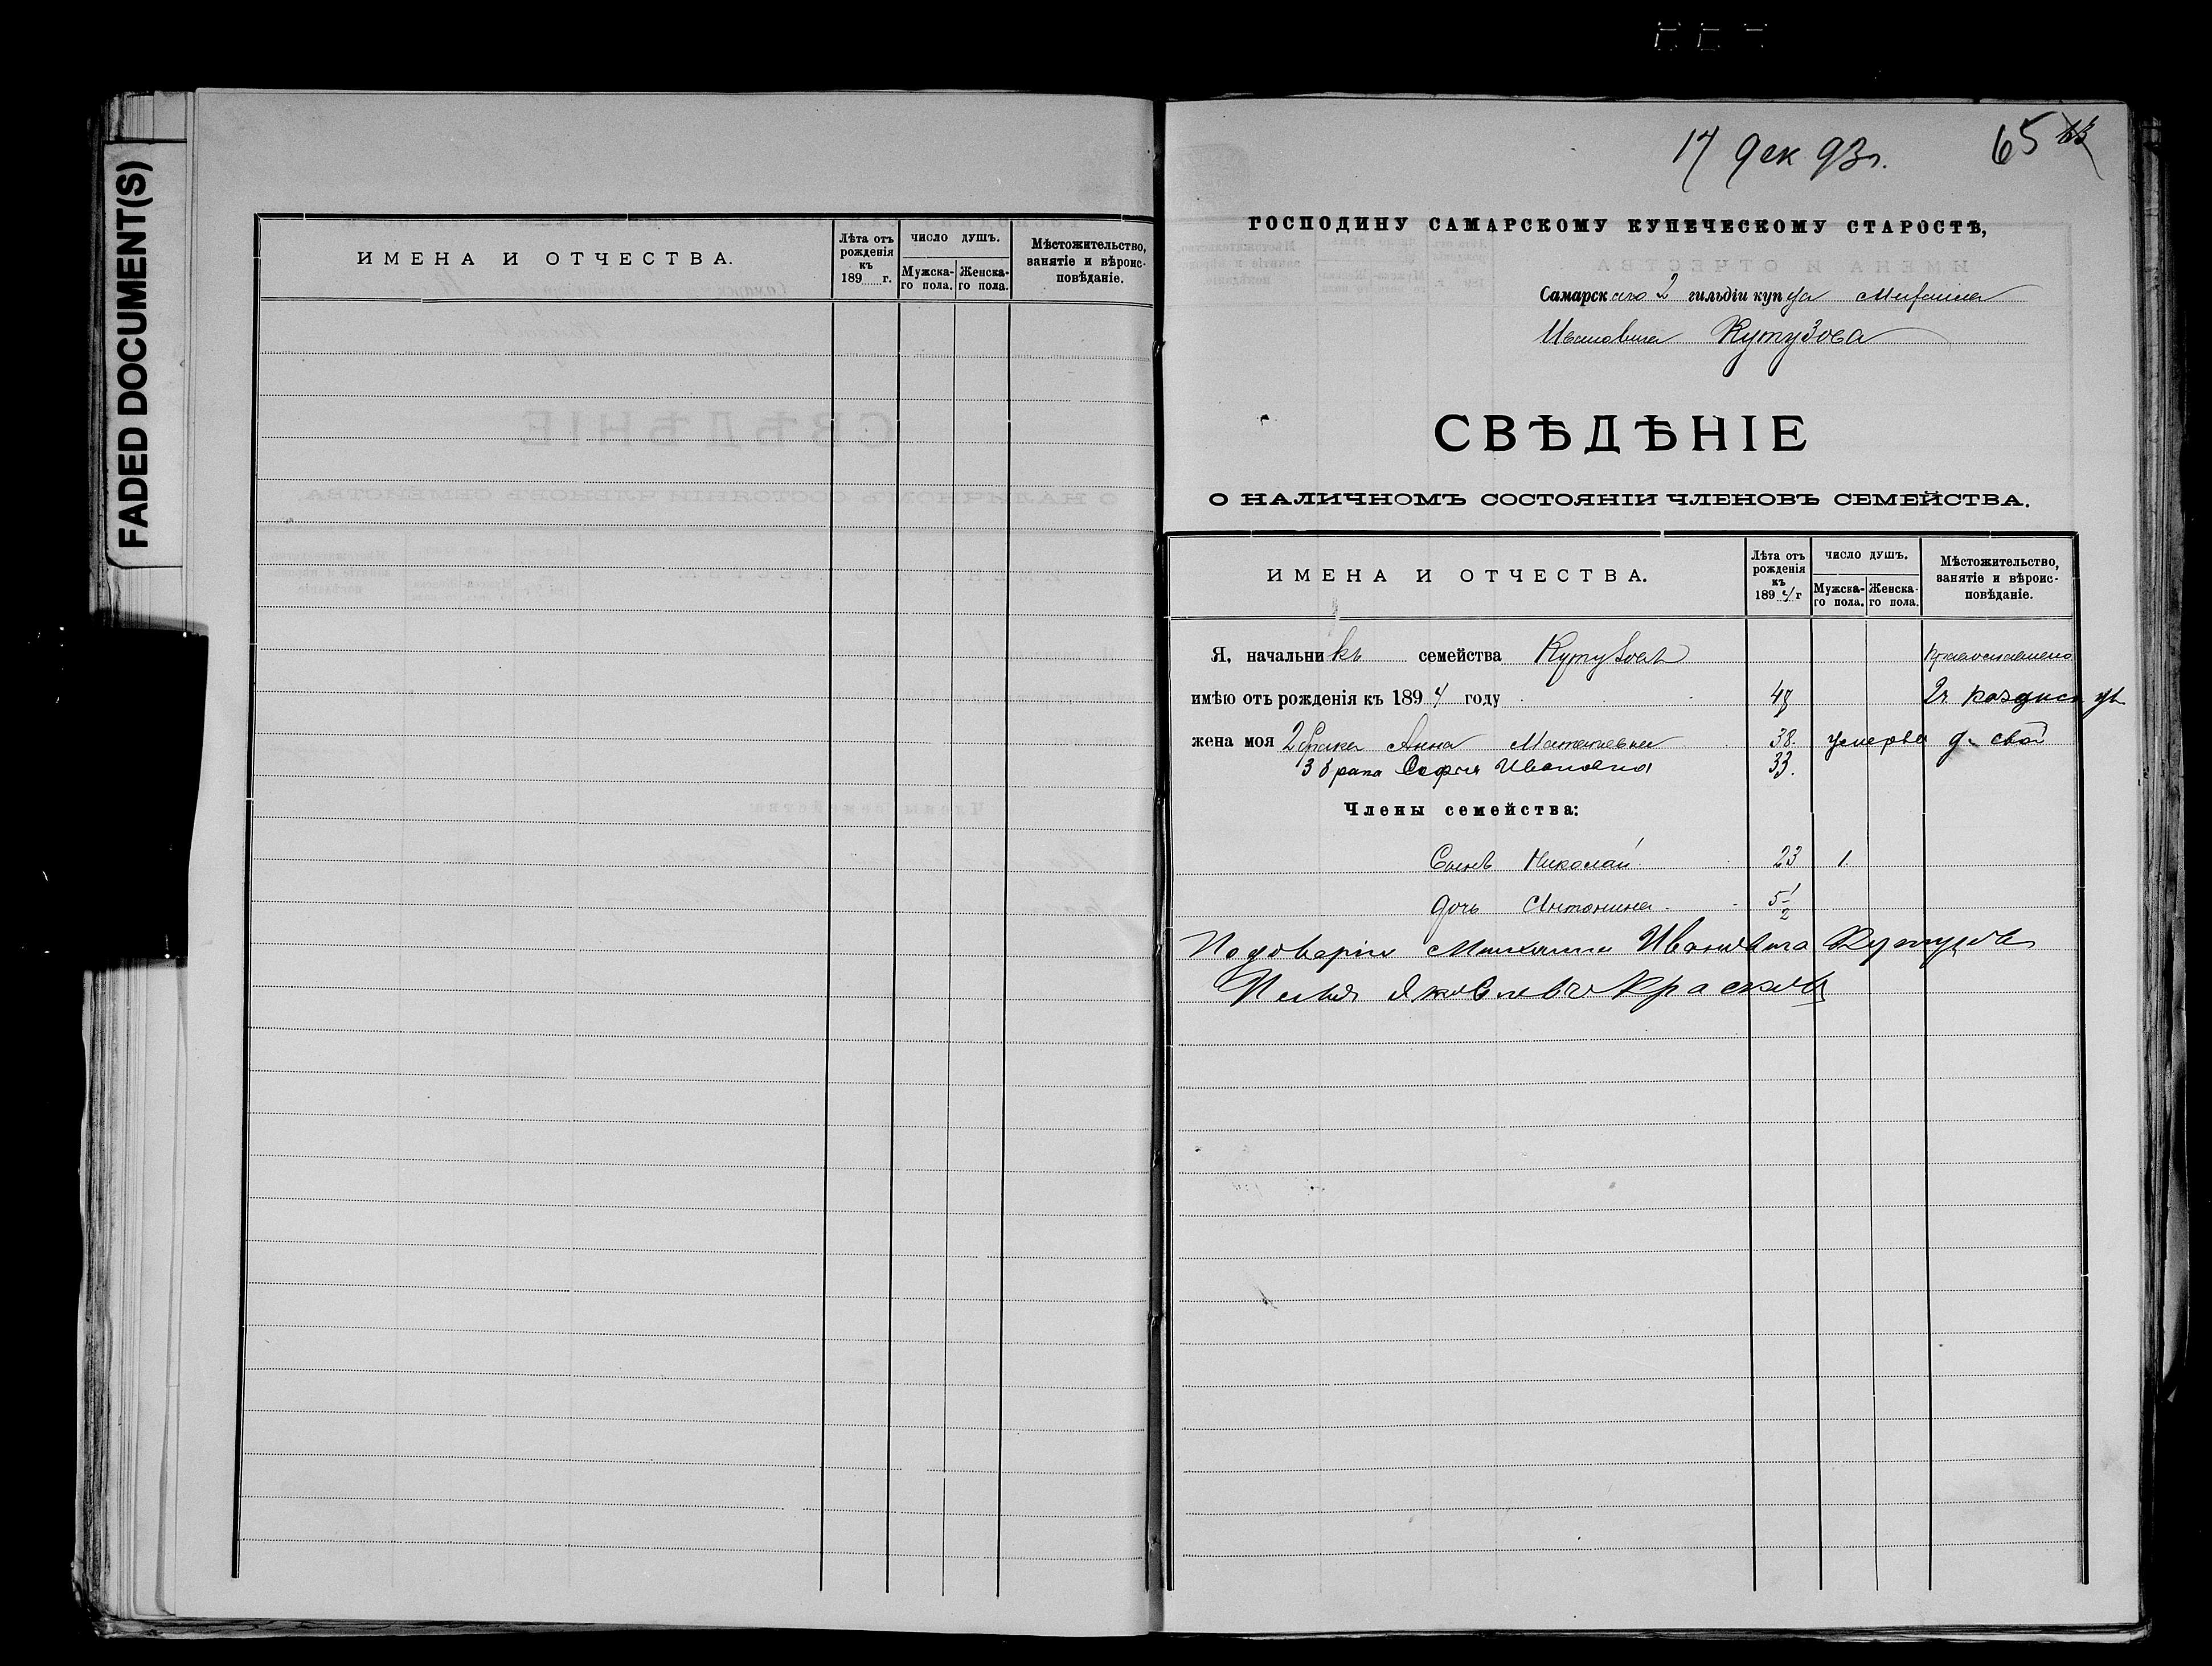 FADED DOCUMENT(S)
ИМЕНА И ОТЧЕСТВА.
Лѣта отъ рожденія къ 189 г.
ЧИСЛО ДУШЪ.
Мужска-го пола.
Женска-го пола.
Мѣстожительство, занятіе и вѣроис-повѣданіе.
17 дек 93 г.
65
ГОСПОДИНУ САМАРСКОМУ КУПЕЧЕСКОМУ СТАРОСТѢ,
Самарскаго 2 гильдіи купца Михаила
Ивановича Кутузова
СВѢДѢНІЕ
О НАЛИЧНОМЪ СОСТОЯНІИ ЧЛЕНОВЪ СЕМЕЙСТВА.
ИМЕНА И ОТЧЕСТВА.
Лѣта отъ рожденія къ 1894 г
ЧИСЛО ДУШЪ.
Мужска-го пола.
Женска-го пола.
Мѣстожительство, занятіе и вѣроис-повѣданіе.
Я, начальникъ семейства Кутузовъ
имѣю отъ рожденія къ 1894 году 2й
жена моя 2 брака Анна Матвеевна 38. умерла
3 брака София Ивановна 33.
Члены семейства:
Сынъ Николай 23 1
дочь Антонина 5 1/2
Подоверию Михаила Ивановича Кутузова
Илья Яковлевъ Красковъ